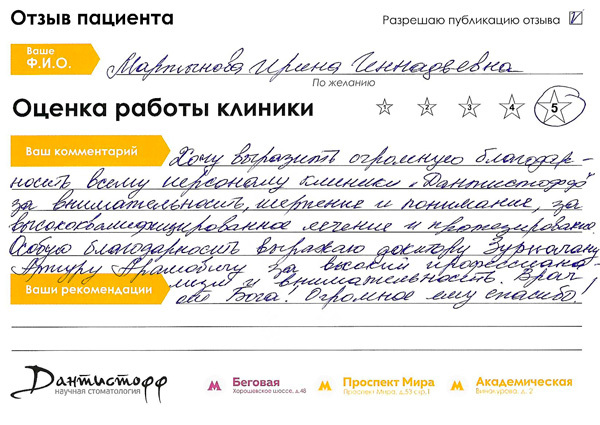 Отзыв пациента
Разрешаю публикацию отзыва
Ваше
Ф.И.О.
Мартынова Ирина Геннадьевна
По желанию
Оценка работы клиники
1 2 3 4 5
Ваш комментарий
Хочу выразить огромную благодар-
ность всему персоналу клиники „Дантистофф"
за внимательность, терпение и понимание, за
высококвалифицированное лечение и протезирование.
Особую благодарность выражаю доктору Зурначану
Артуру Арамовичу за высокий профессиона-
Ваши рекомендации
лизм и внимательность. Врач
от Бога! Огромное ему спасибо!
Дантистофф
научная стоматология
М Беговая
Хорошевское шоссе, д.48
М Проспект Мира
Проспект Мира, д.53 стр.1
М Академическая
Винокурова, д. 2